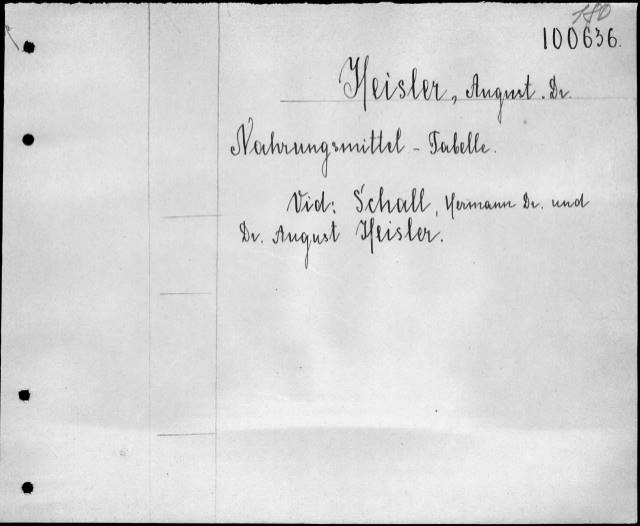 180
100636.
Heisler, August. Dr.
Nahrungsmittel - Tabelle.
Vid: Schall, Hermann Dr. und
Dr. August Heisler.